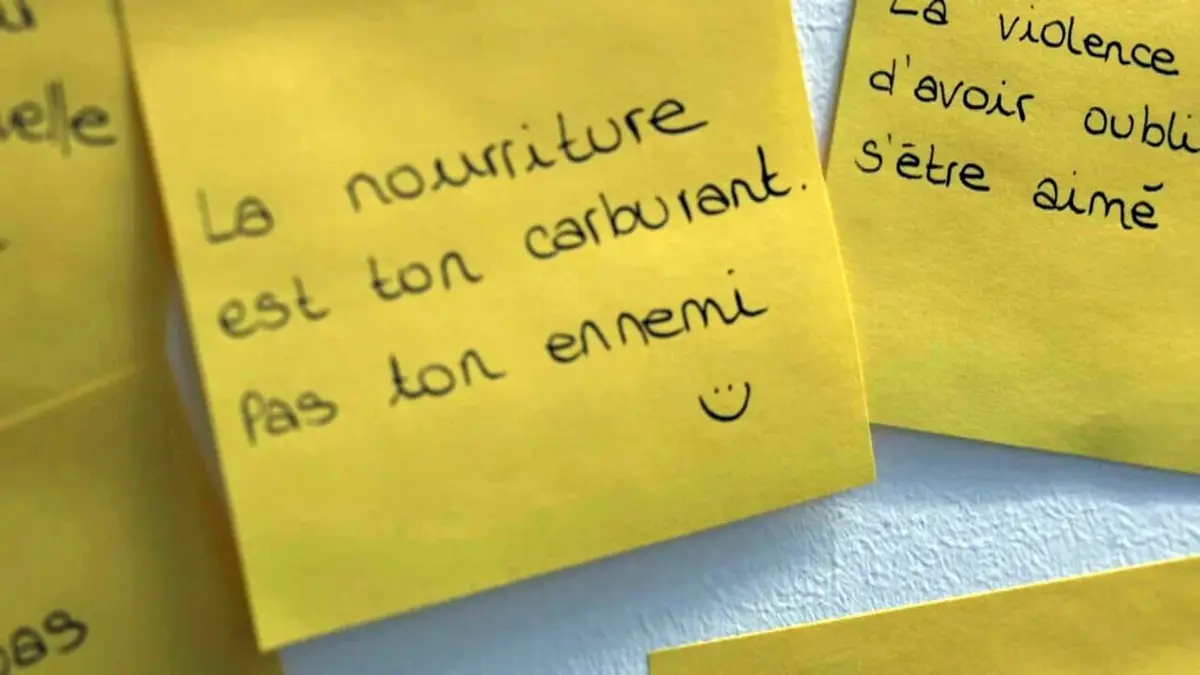 La nourriture
est ton carburant.
Pas ton ennemi
La violence
d'avoir oubli
s'être aimé
elle
pas